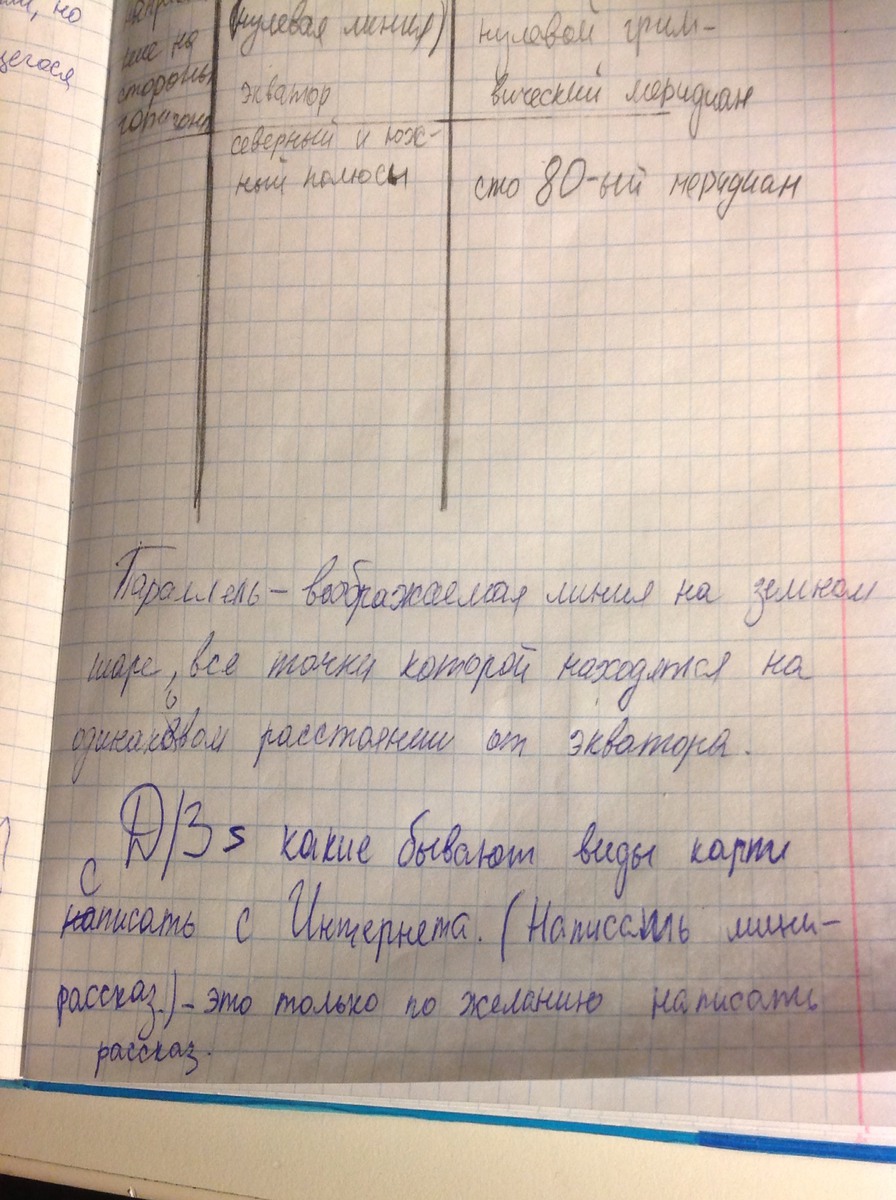 но
щегося
ние на
стороны
горизонта
(нулевая линия)
экватор
северный и юж-
ный полюсы
нулавой грин-
вический меридиан
сто 80-ый меридиан
Параллель – воображаемая линия на земном
шаре, все точки которой находятся на
одинаковом расстоянии от экватора.
Д/З s какие бывают виды карт
списать с Интернета. (Написать мини-
рассказ.) – это только по желанию написать
рассказ.